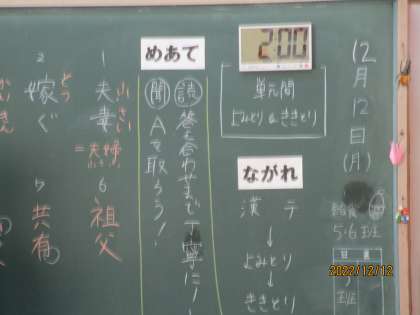 12月12日(月)
給食
5・6班
日直
班
2:00
単元間
よみとり&ききとり
ながれ
漢テ
↓
よみとり
↓
ききとり
めあて
読 答え合わせまで丁寧に!
聞 Aを取ろう!
1 夫妻 ふさい
=夫婦
6 祖父
2 嫁ぐ とつ
5 共有
2022/12/12